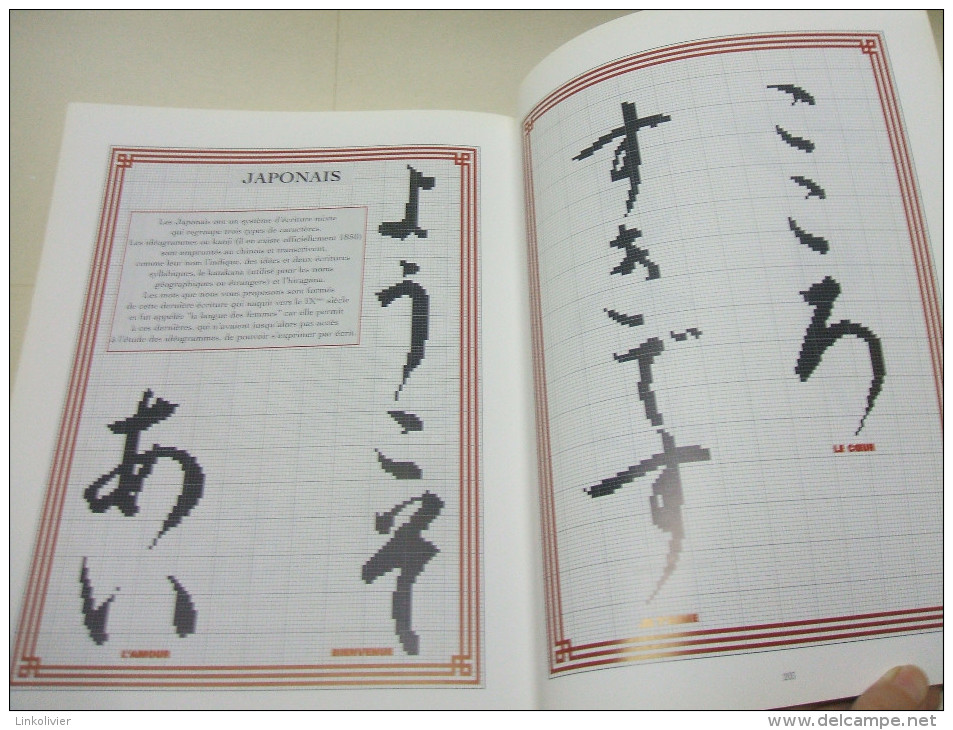 JAPONAIS
Les Japonais ont un système d'écriture mixte
qui regroupe trois types de caractères.
Les idéogrammes ou kanji (il en existe officiellement 1850)
sont empruntés au chinois et transcrivent,
comme leur nom l'indique, des idées et deux écritures
syllabiques, le katakana (utilisé pour les noms
géographiques ou étrangers) et l'hiragana.
Les mots que nous vous proposons sont formés
de cette dernière écriture qui naquit vers le IXème siècle
et fut appelée "la langue des femmes" car elle permit
à ces dernières, qui n'avaient jusqu'alors pas accès
à l'étude des idéogrammes, de pouvoir s'exprimer par écrit.
あい
L'AMOUR
ようこそ
BIENVENUE
すきです
JE T'AIME
こころ
LE CŒUR
205
Linkolivier
www.delcampe.net